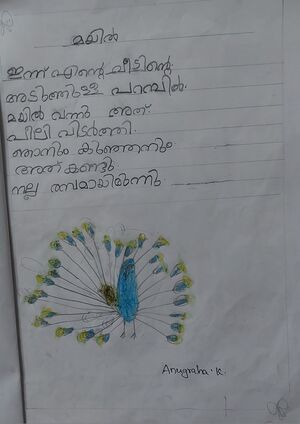 മയിൽ
ഇന്ന് എൻ്റെ വീട്ടിൻ്റെ
അടുത്തുള്ള പറമ്പിൽ
മയിൽ വന്നു അത്
പീലി വിടർത്തി.
ഞാനും കുഞ്ഞനും
അത് കണ്ടു
നല്ല രസമായിരുന്നു
Anugraha. K.